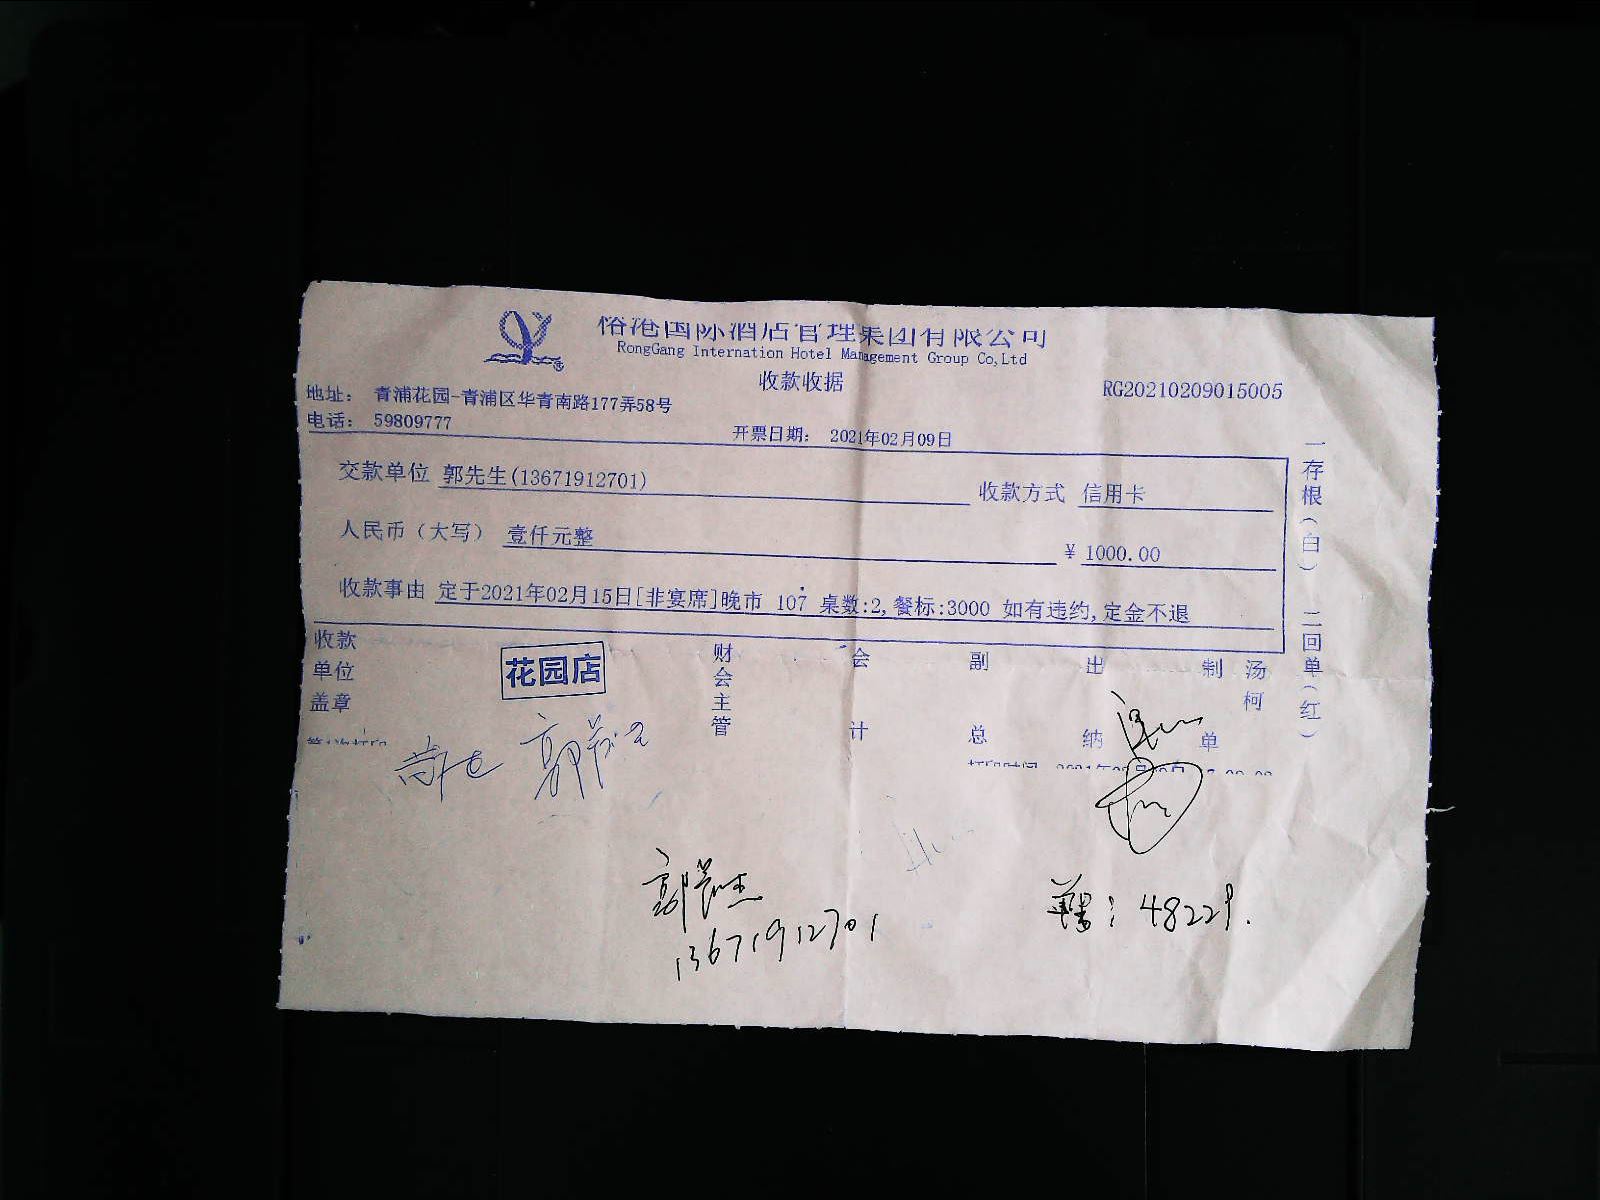 国际酒店管理集团有限公司
RongGang Internation Hotel Management Group Co,Ltd
收款收据
RG20210209015005
地址： 青浦花园-青浦区华青南路177弄58号
电话： 59809777
开票日期： 2021年02月09日
交款单位 郭先生(13671912701)
收款方式 信用卡
人民币（大写） 壹仟元整
¥ 1000.00
收款事由 定于2021年02月15日[非宴席]晚市 107 桌数:2,餐标:3000 如有违约,定金不退
一存根（白） 二回单（红）
收款单位盖章
花园店
财会主管
会计
副总
出纳
制单
汤柯
13671912701